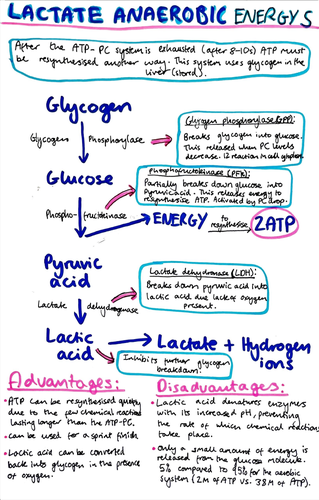 LACTATE ANAEROBIC ENERGY S
After the ATP-PC system is exhausted (after 8-10s) ATP must
be resynthesised another way. This system uses glycogen in the
liver (stored).
Glycogen
Glycogen Phosphorylase
Glycogen phosphorylase (GPP):
Breaks glycogen into glucose.
This released when PC levels
decrease. 12 reaction in cell
Glucose
Phosphofructokinase (PFK):
Partially breaks down glucose into
Pyruvic acid. This releases energy to
resynthesise ATP. Activated by PC drop.
Phospho-fructokinase
ENERGY to resynthesise 2ATP
Pyruvic
acid
Lactate dehydronase (LDH):
Breaks down pyruvic acid into
lactic acid due lack of oxygen
present.
Lactate dehydrogenase
Lactic
acid
Lactate + Hydrogen
ions
Inhibits further glycogen
breakdown.
Advantages:
• ATP can be resynthesised quickly
due to the few chemical reactions
lasting longer than the ATP-PC.
• can be used for a sprint finish
• Lactic acid can be converted
back into glycogen in the presence
of oxygen.
Disadvantages:
• Lactic acid denatures enzymes
with its increased pH, preventing
the rate of which chemical reactions
take place.
• Only a small amount of energy is
released from the glucose molecule.
5% compared to 95% for the aerobic
system (2M of ATP vs. 38M of ATP).